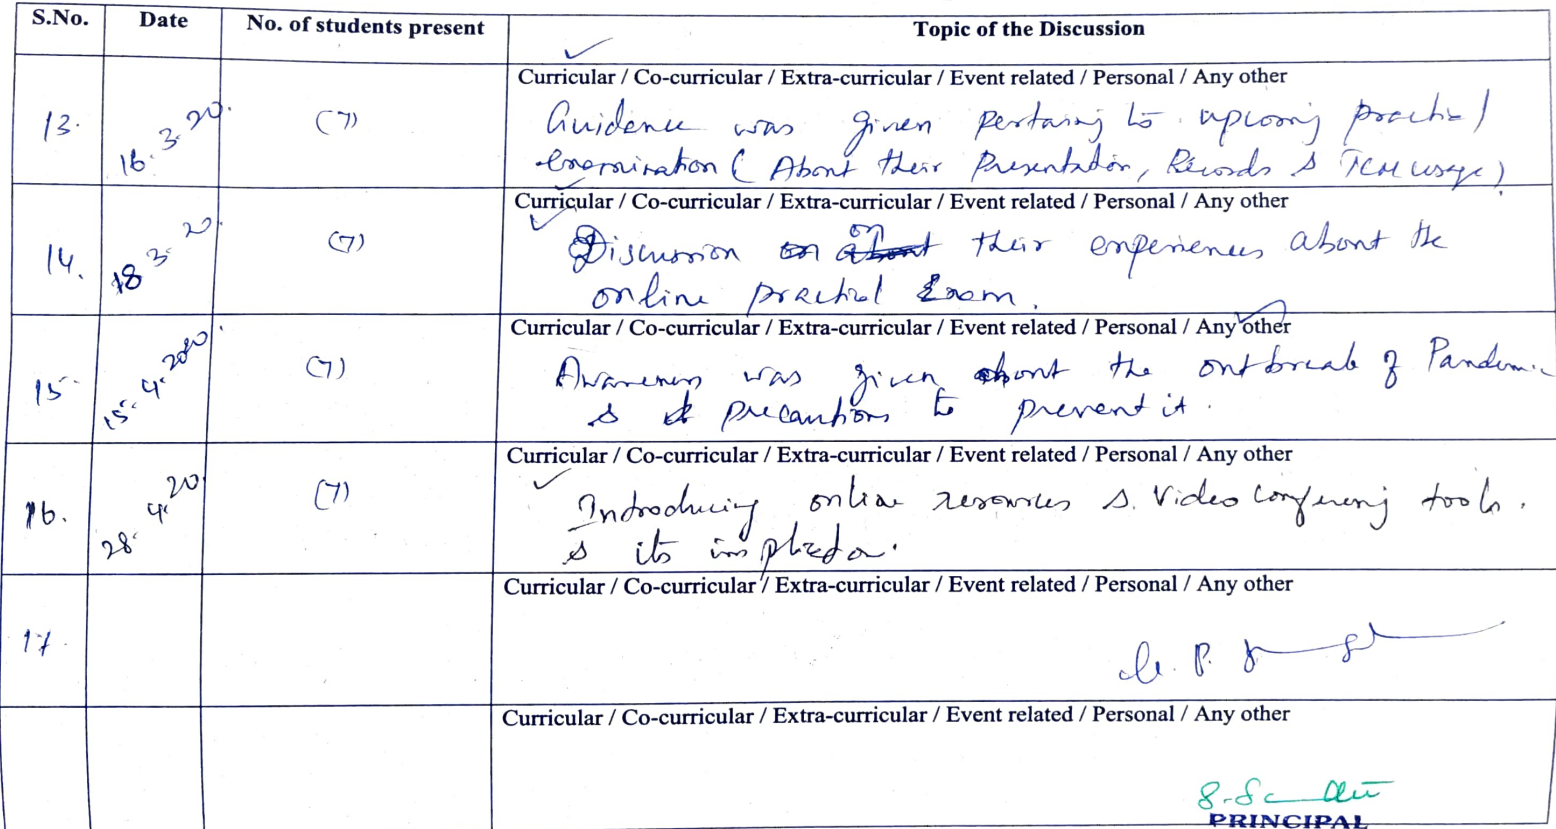 S.No. Date No. of students present Topic of the Discussion
Curricular / Co-curricular / Extra-curricular / Event related / Personal / Any other
13. 16.3.20. (7) Guidence was given pertaing to upcoming practical
Examination ( About their Presentation, Records & TLM usage).
Curricular / Co-curricular / Extra-curricular / Event related / Personal / Any other
14. 18 3. 20. (7) Discussion on their experiences about the
online practical Exam.
Curricular / Co-curricular / Extra-curricular / Event related / Personal / Any other
15. 15.4.2020. (7) Awareness was given about the outbreak of Pandemic
& precautions to prevent it.
Curricular / Co-curricular / Extra-curricular / Event related / Personal / Any other
16. 28.4.20 (7) Introducing online resources & Video Conferencing tools.
& its
Curricular / Co-curricular / Extra-curricular / Event related / Personal / Any other
17.
Curricular / Co-curricular / Extra-curricular / Event related / Personal / Any other
PRINCIPAL